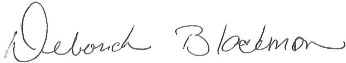 Deborah Blackmon